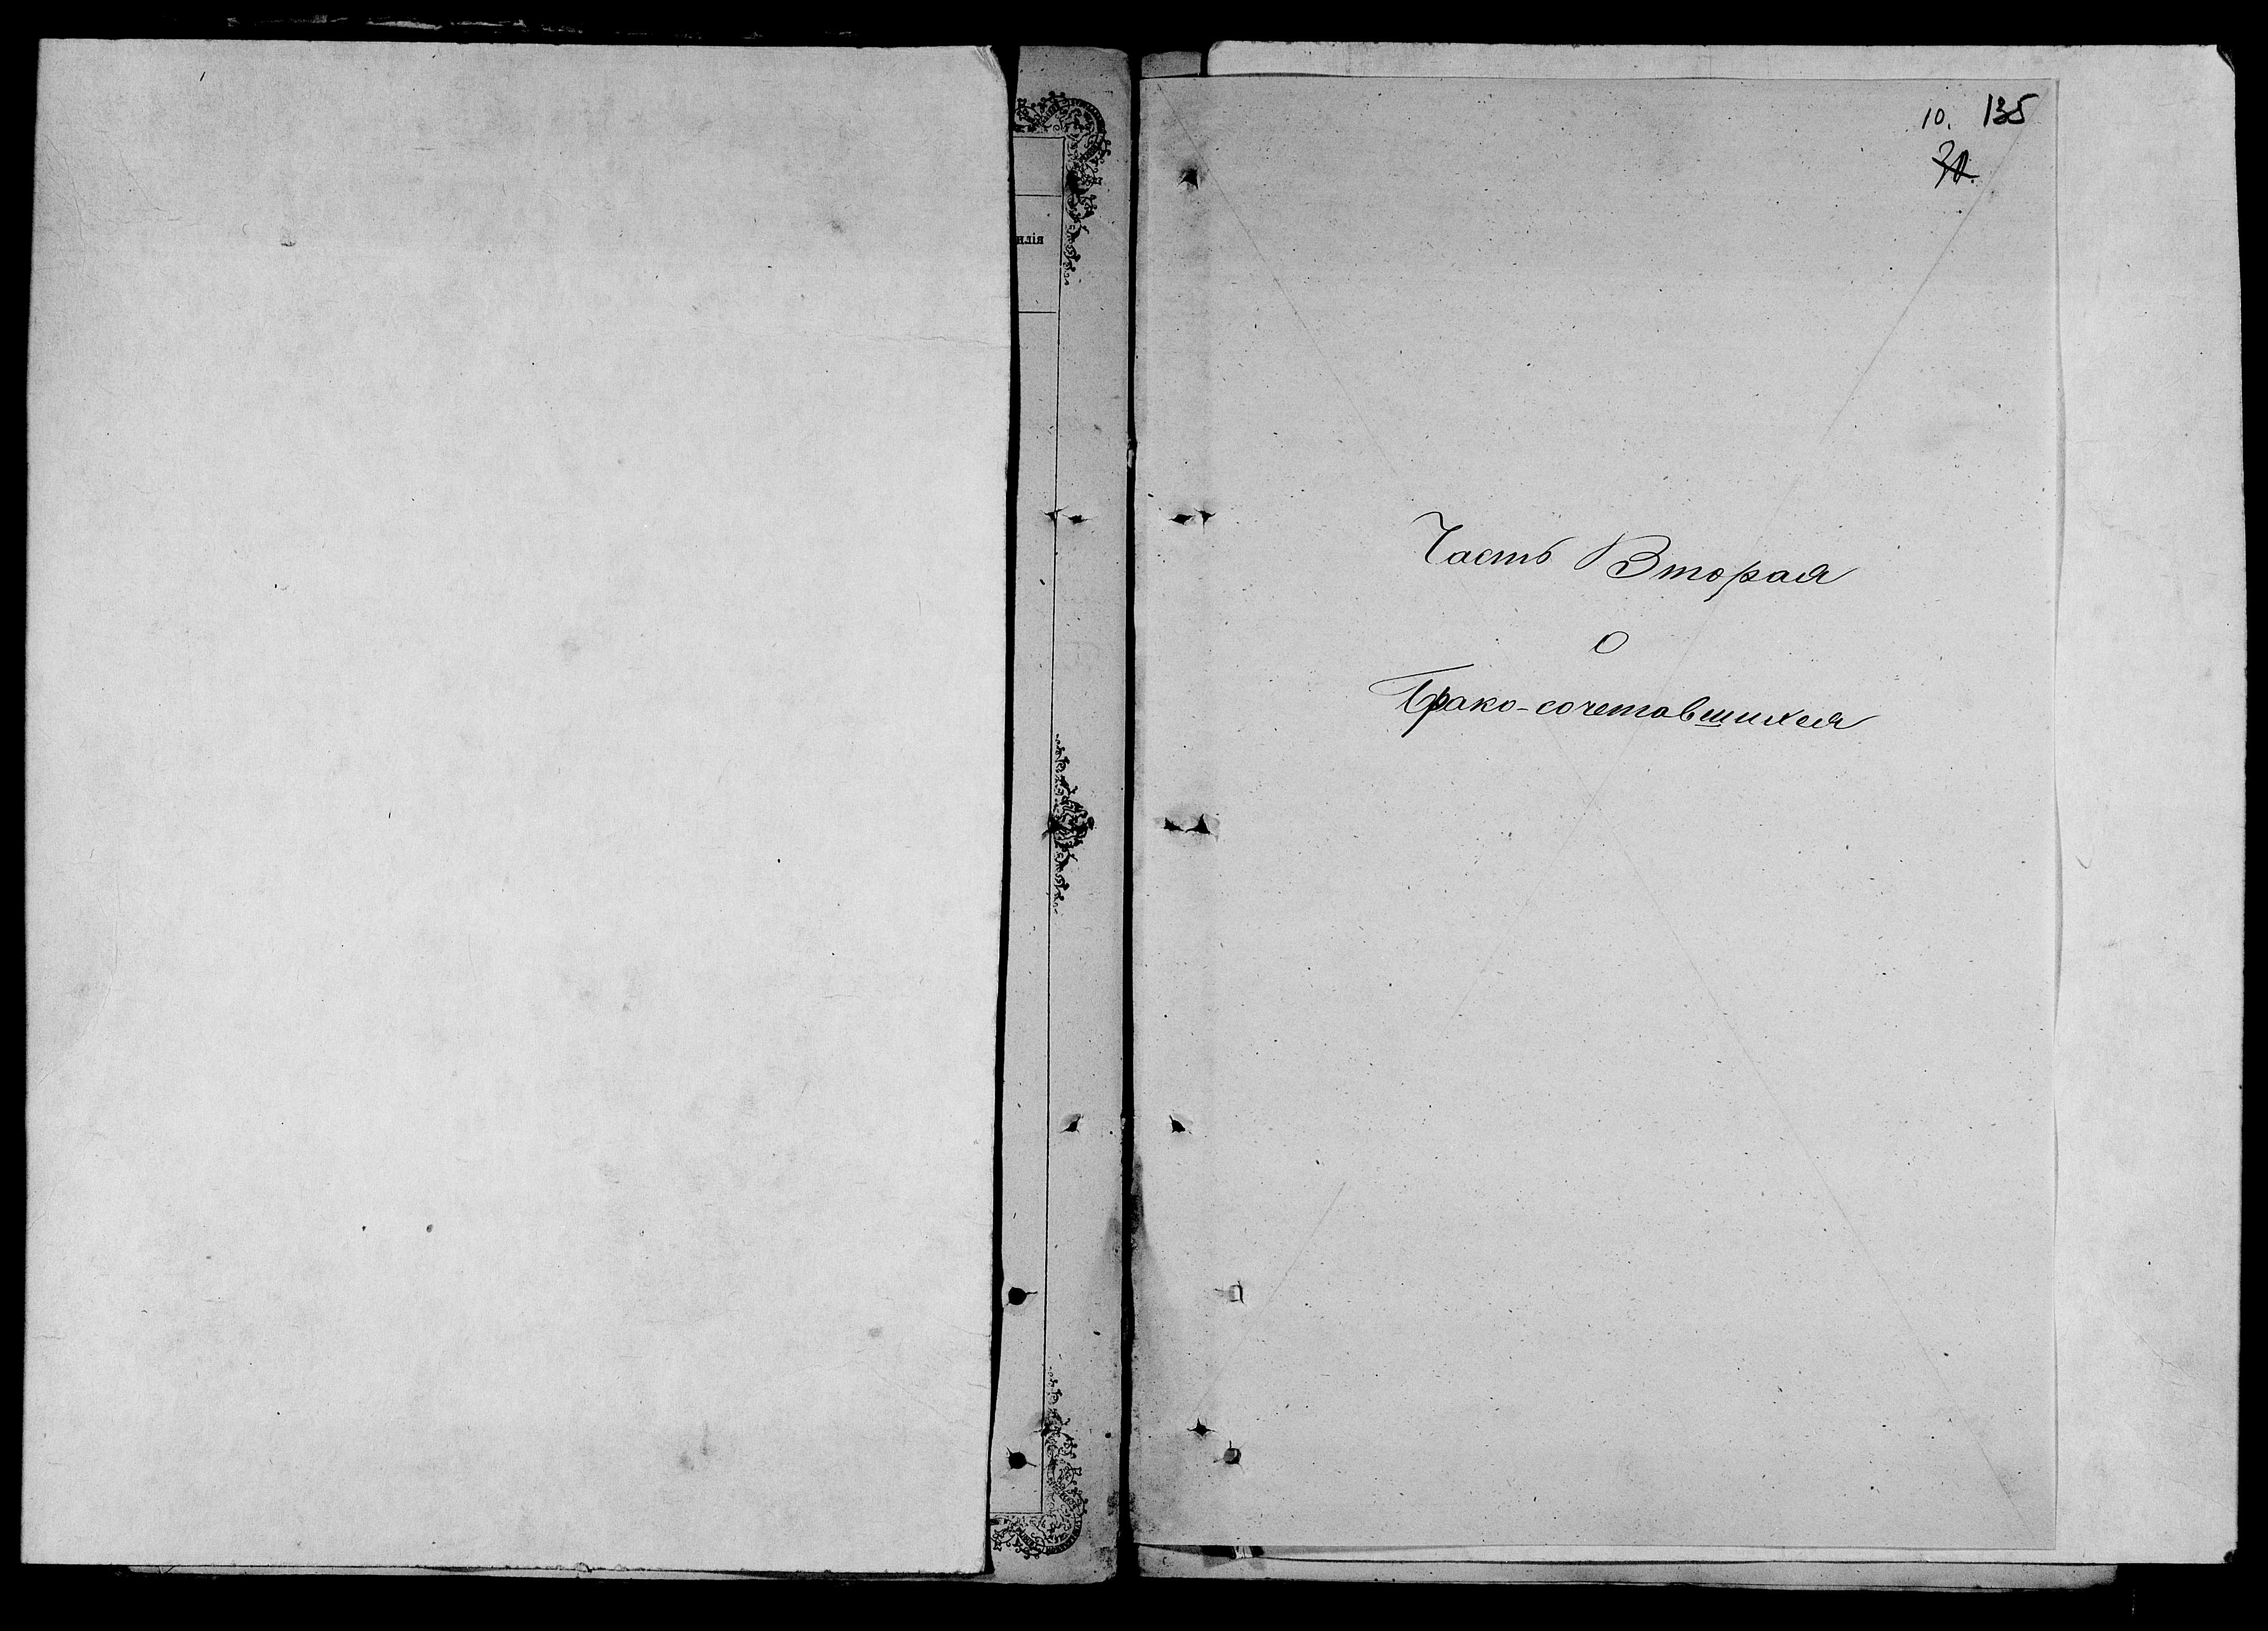 10. 135
Часть Вторая
о
Брако-сочетавшихся